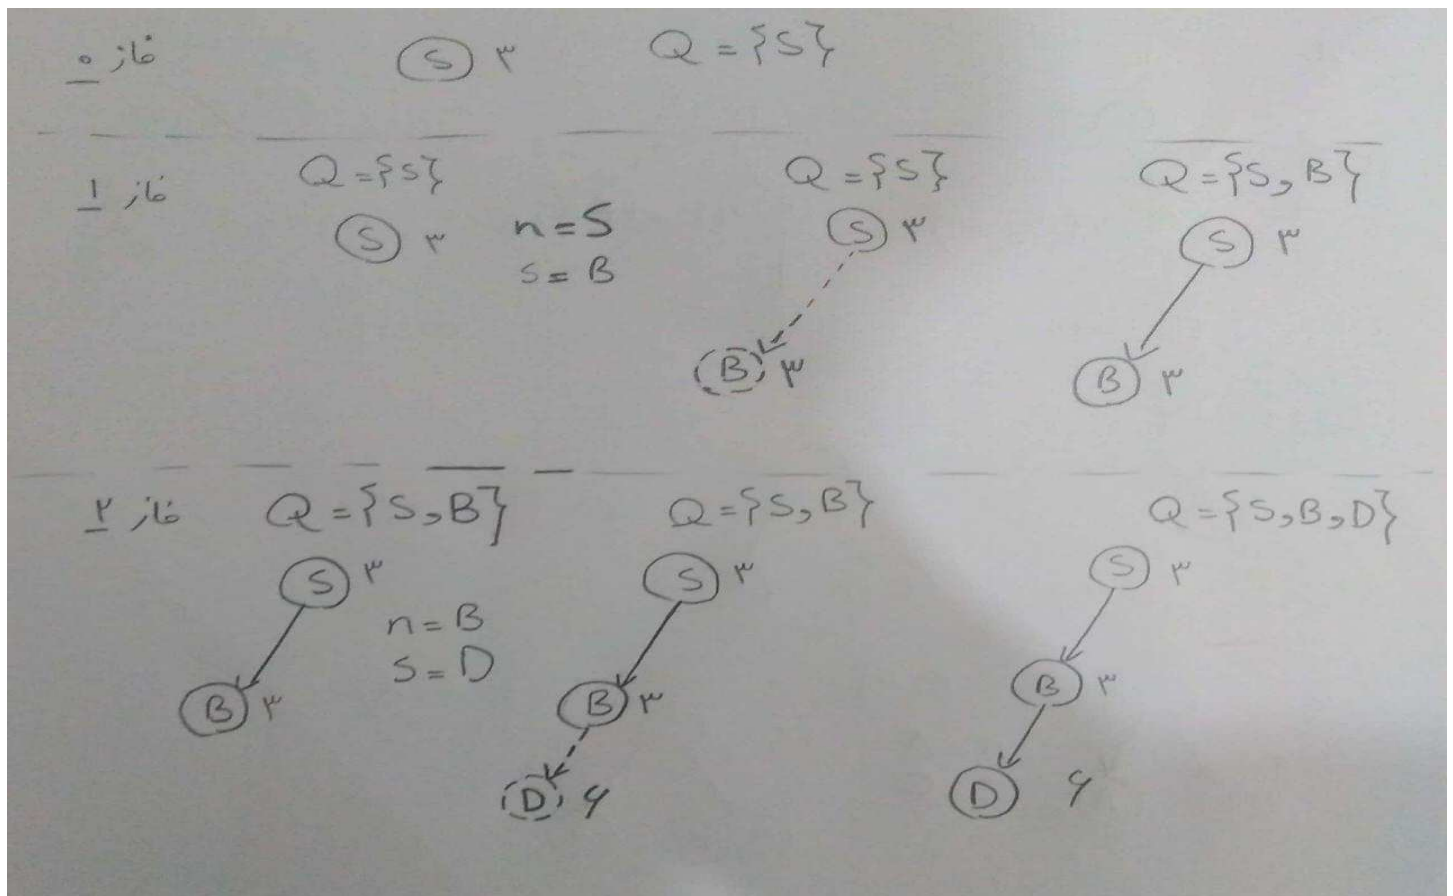 فاز ۰
S ۳
Q = {S}
فاز ۱
Q = {S}
S ۳
n = S
s = B
Q = {S}
S ۳
B ۳
Q = {S, B}
S ۳
B ۳
فاز ۲
Q = {S, B}
S ۳
B ۳
n = B
s = D
Q = {S, B}
S ۳
B ۳
D ۶
Q = {S, B, D}
S ۳
B ۳
D ۶